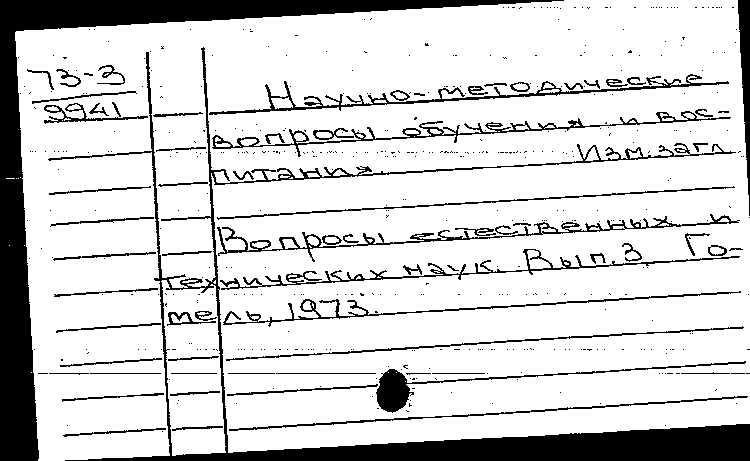 73-3
9941
Научно-методические
вопросы обучения и вос=
питания. Изм.загл
Вопросы естественных и
технических наук. Вып.3. Го-
мель, 1973.